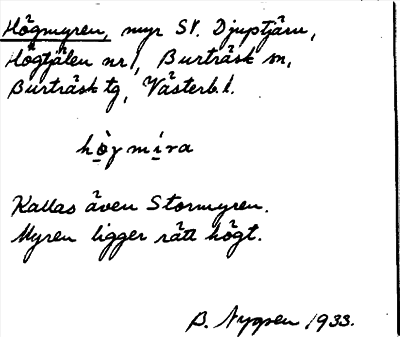 Högmyren, myr St. Djuptjärn,
Högtjälen nr 1, Burträsk sn,
Burträsk tg, Västerb. l.
hògmíra
Kallas även Stormyren.
Myren ligger rätt högt.
B. Nygren 1933.